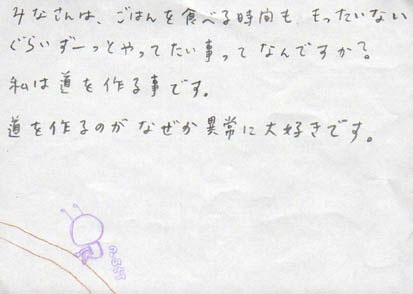 みなさんは、ごはんを食べる時間も、もったいない
ぐらいずーっとやってたい事ってなんですか?
私は道を作る事です。
道を作るのがなぜか異常に大好きです。